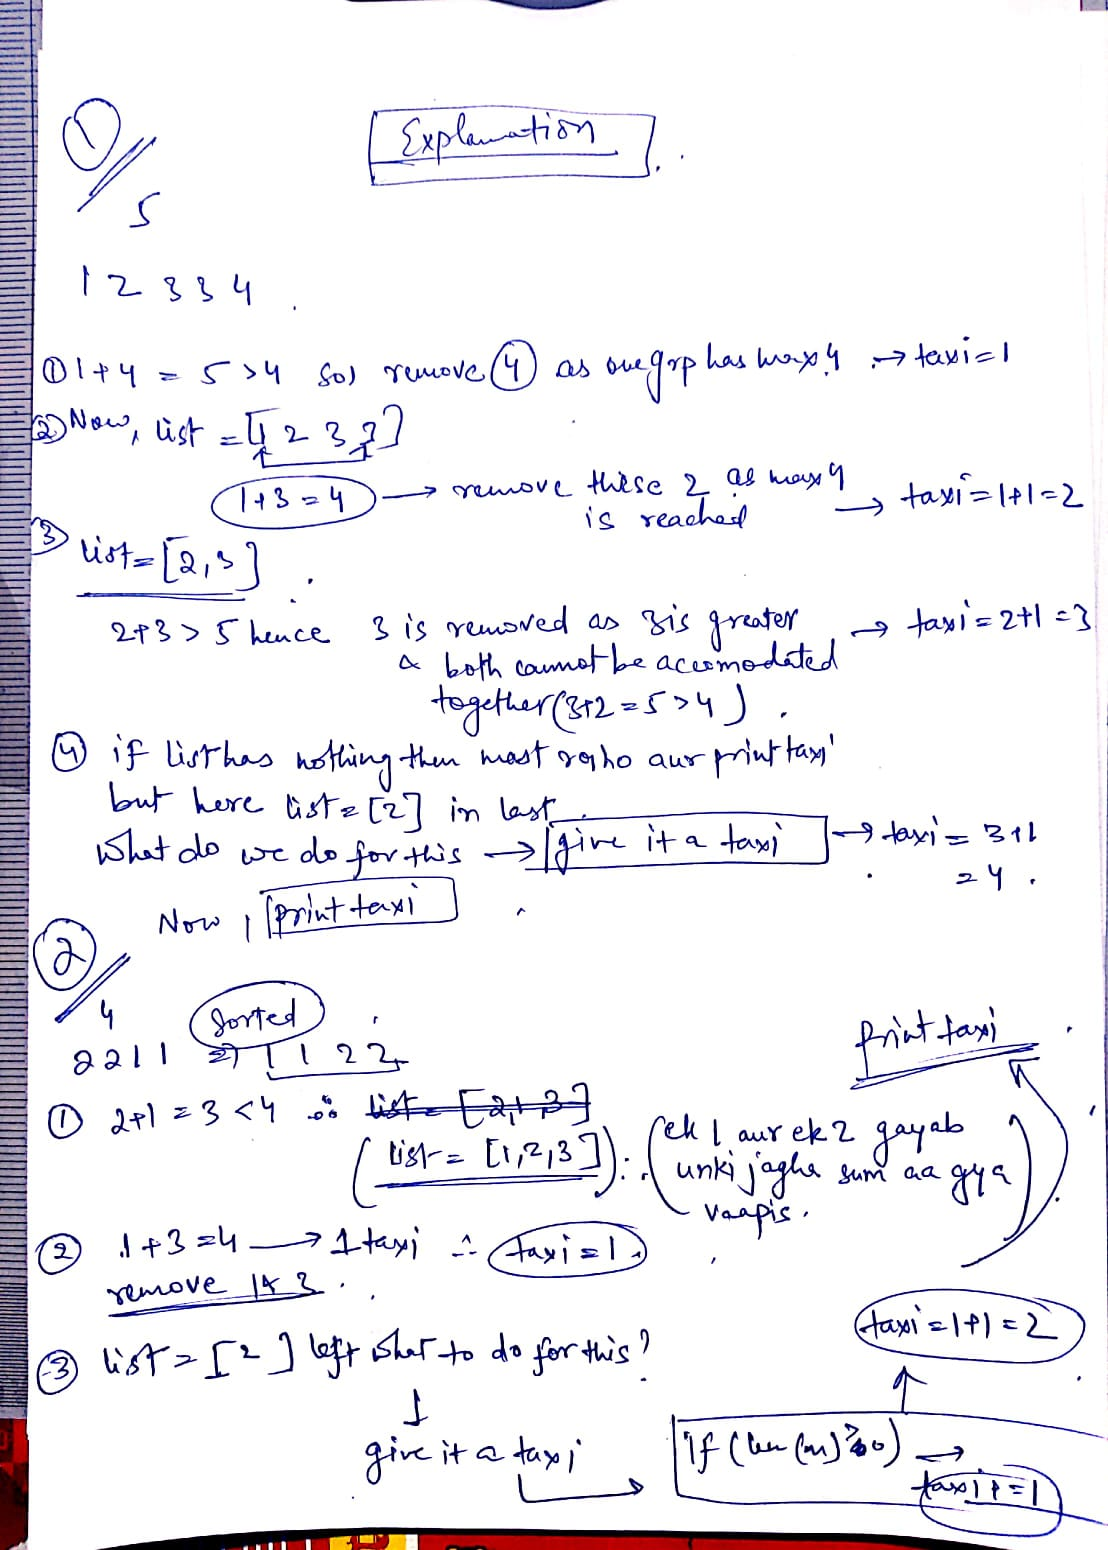 1
Explanation
5
1 2 3 3 4
① 1+4 = 5 >4 So, remove 4 as one grp has max 4 → taxi=1
② Now, list = [1 2 3 3]
1+3=4 → remove these 2 as max 4 → taxi=1+1=2
is reached
③ list=[2,3]
2+3 > 5 hence 3 is removed as 3 is greater → taxi=2+1=3
& both cannot be accomodated
together(3+2=5>4).
④ if list has nothing then mast raho aur print taxi
but here list=[2] in last
What do we do for this → give it a taxi → taxi = 3+1
=4.
Now, print taxi
2
4 Sorted
2 2 1 1 ⇒ 1 1 2 2
print taxi
① 2+1 = 3 <4 ∴ list = [2,1 3]
(list= [1,2,3]) ∴ (ek 1 aur ek 2 gayab
unki jagha sum aa gya
vaapis.
② 1+3=4 → 1 taxi ∴ taxi=1
remove 1 & 3.
taxi=1+1=2
③ list= [2] left what to do for this?
↓
give it a taxi → if (len(m)>0) →
taxi+=1